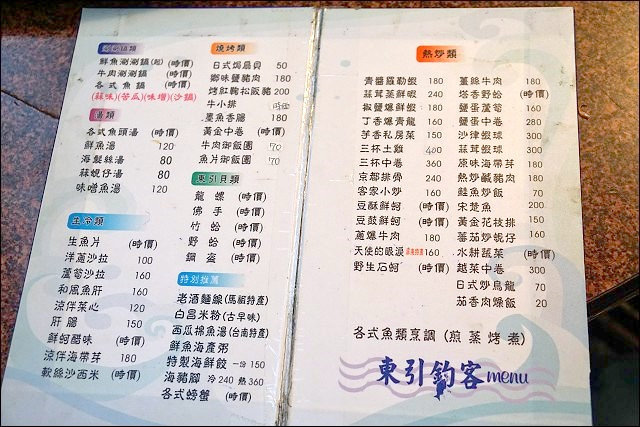 涮涮鍋類
鮮魚涮涮鍋(起) (時價)
牛肉涮涮鍋 (時價)
各式魚鍋 (時價)
(蒜味)(苦瓜)(味噌)(沙鍋)
湯類
各式魚頭湯 (時價)
鮮魚湯 120
海髮絲湯 80
蒜蜆仔湯 80
味噌魚湯 120
生冷類
生魚片 (時價)
洋蔥沙拉 100
蘆筍沙拉 160
和風魚肝 160
涼伴菜心 120
肝腸 150
鮮蚵醋味 (時價)
涼伴海帶芽 180
軟絲沙西米 (時價)
燒烤類
日式焗扇貝 50
鄉味鹽豬肉 180
烤紅麴松阪豬 200
牛小排 時價
墨魚香腸 180
黃金中卷 (時價)
牛肉御飯團 70
魚片御飯團 70
東引貝類
龍螺 (時價)
佛手 (時價)
竹蛤 (時價)
野蛤 (時價)
鋼盔 (時價)
特別推薦
老酒麵線(馬祖特產)
白呂米粉(古早味)
西瓜綿魚湯(台南特產)
鮮魚海產粥
特製海鮮餃 一份150
海豬腳 冷240 熱360
各式螃蟹 (時價)
熱炒類
青醬羅勒蝦 180
蒜茸蒸鮮蝦 240
椒鹽爆鮮蝦 180
丁香爆青龍 160
芋香私房菜 150
三杯土雞 400
三杯中卷 360
京都排骨 240
客家小炒 160
豆酥鮮蚵 (時價)
豆鼓鮮蚵 (時價)
蔥爆牛肉 180
天使的眼淚 160
野生石蚵 (時價)
薑絲牛肉 180
塔香野蛤 (時價)
鹽蛋蘆筍 160
鹽蛋中卷 280
沙律蝦球 300
蒜茸蝦球 300
原味海帶芽 180
熱炒鹹豬肉 180
鮭魚炒飯 70
宋楚魚 200
黃金花枝排 150
蕃茄炒蜆仔 160
水耕蔬菜 (時價)
越菜中卷 300
日式炒烏龍 70
茄香肉燥飯 20
各式魚類烹調 (煎 蒸 烤 煮)
東引釣客menu